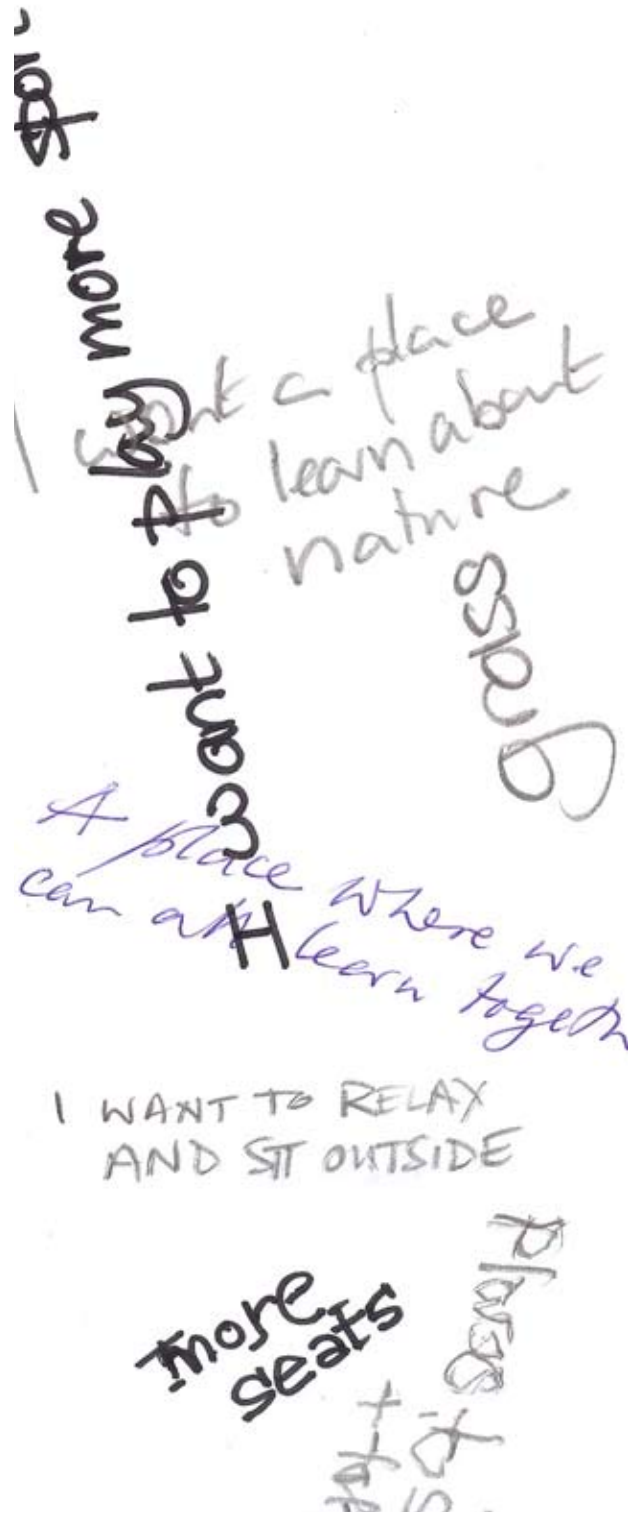 I want to play more
I want a place
to learn about
nature
grass
A place where we
can all learn
I WANT TO RELAX
AND SIT OUTSIDE
more
seats
to